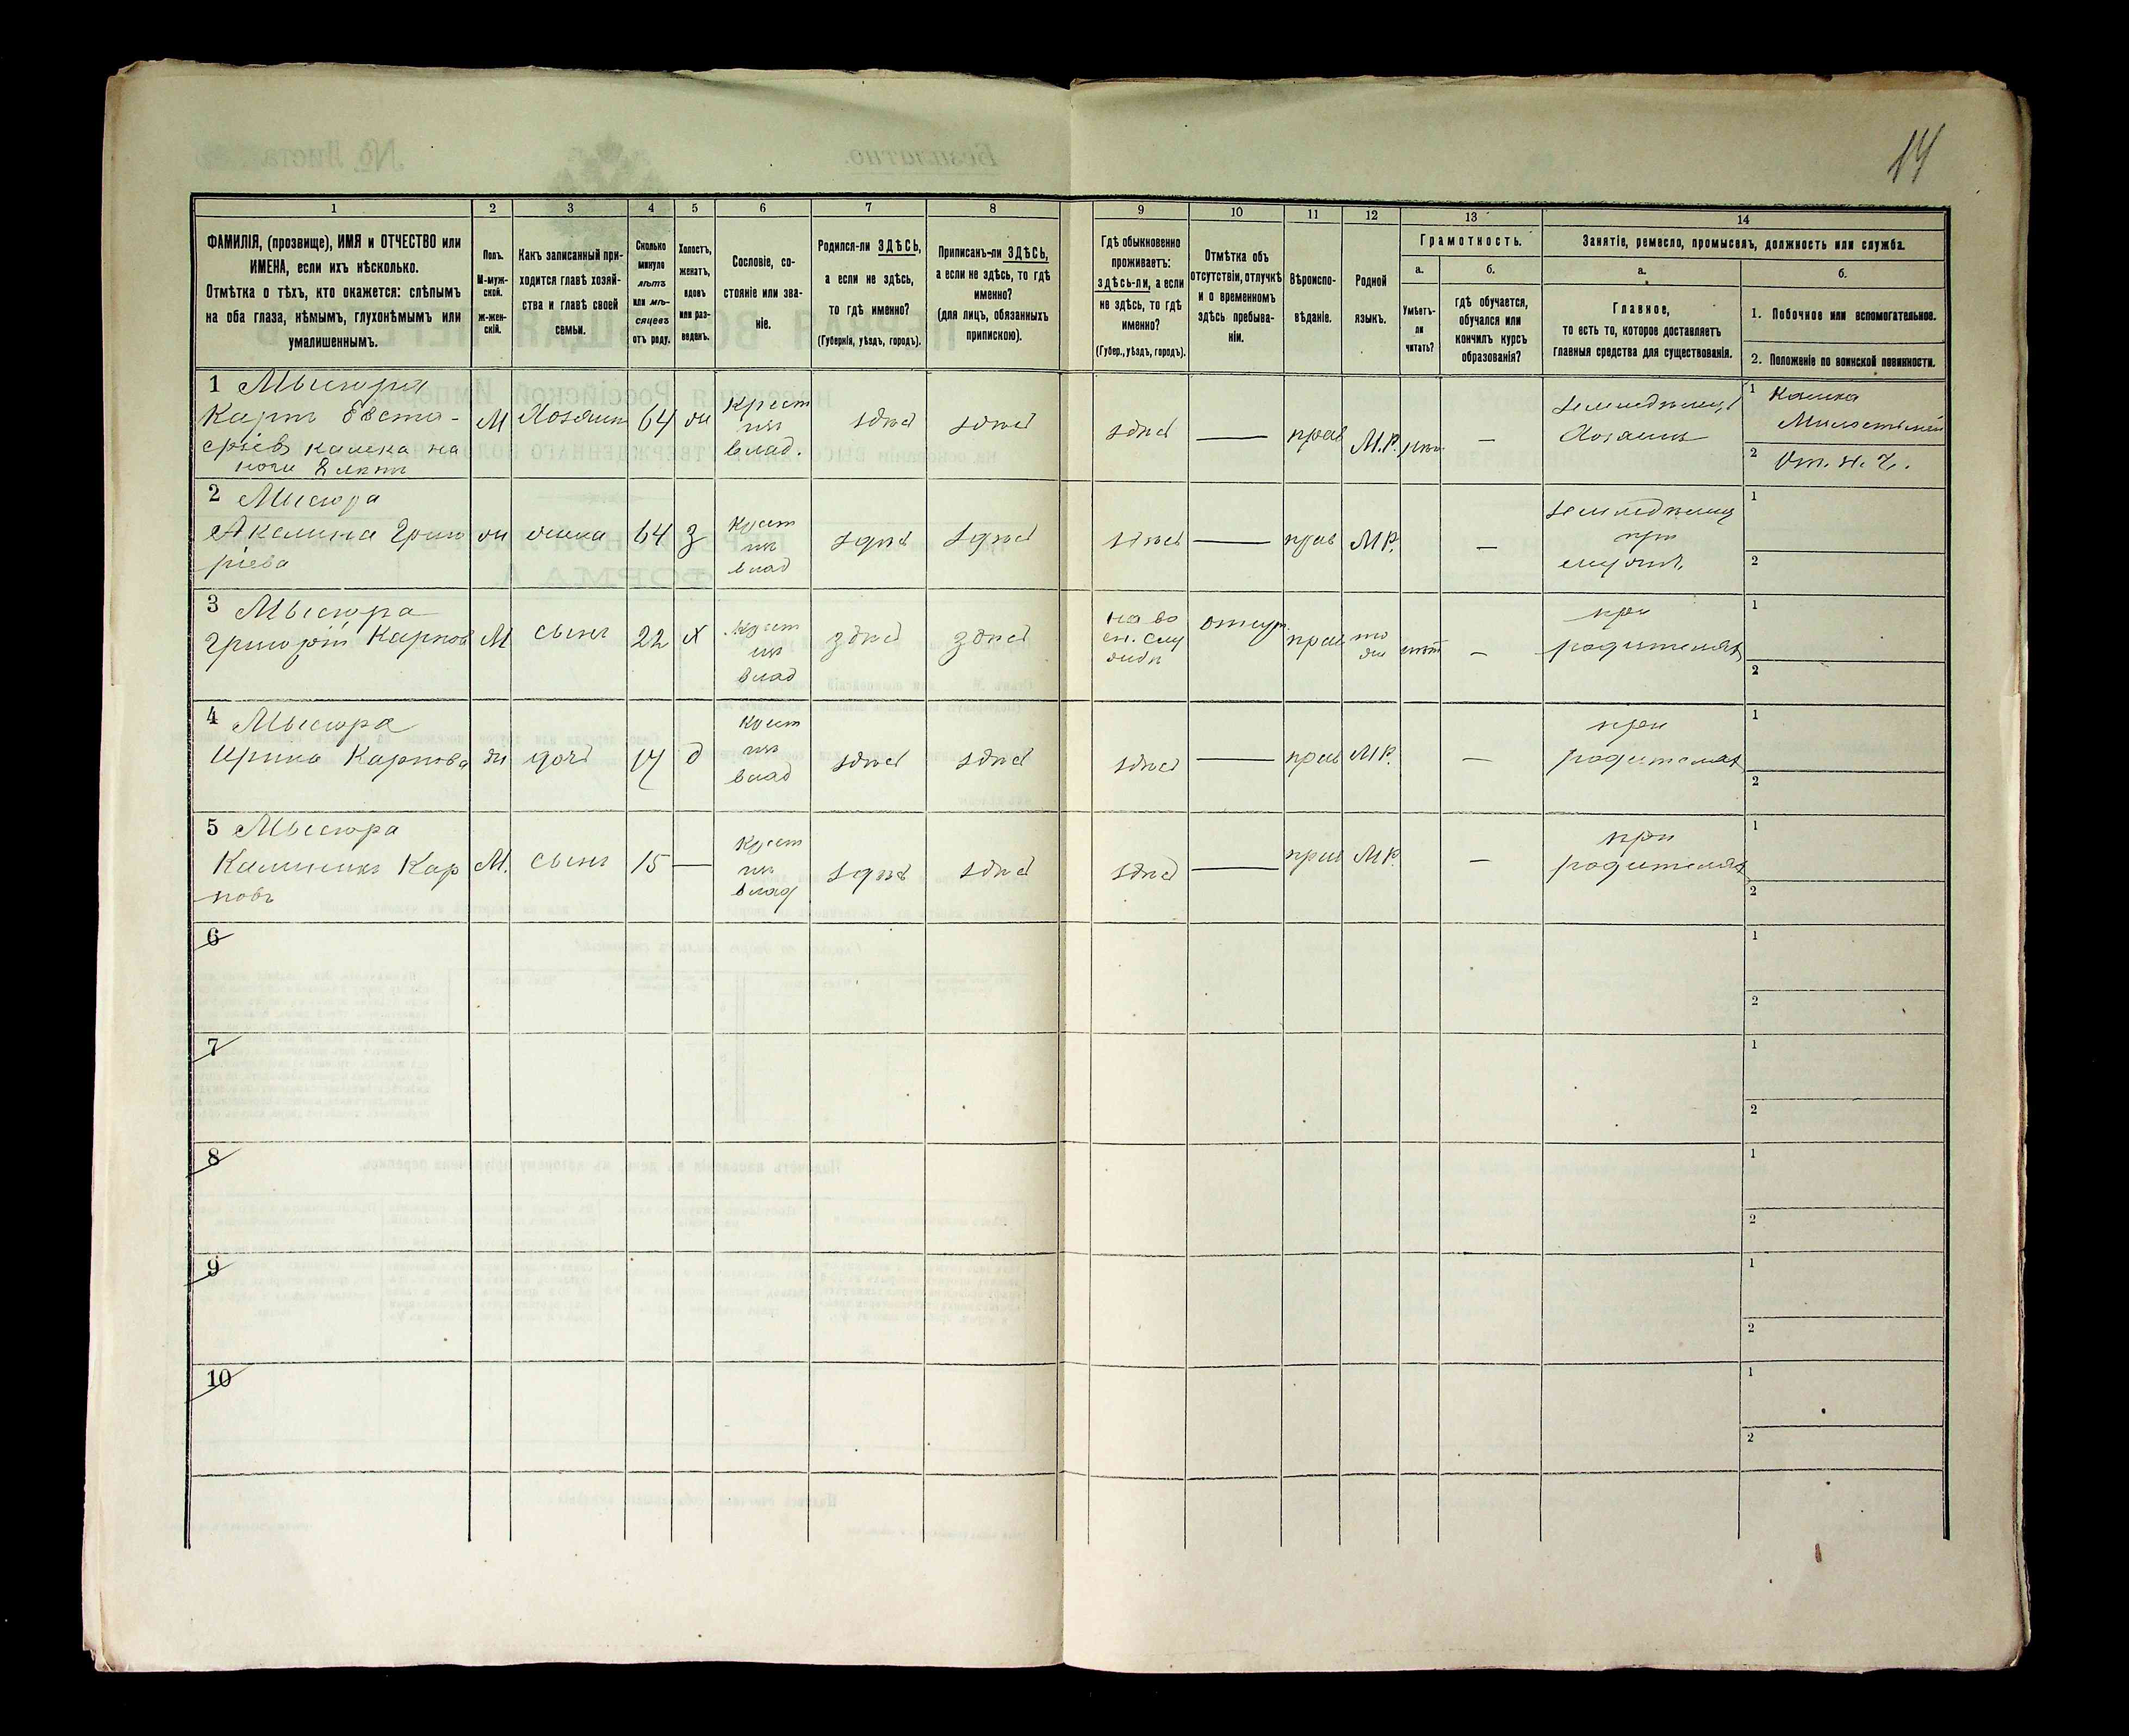 14
1 2 3 4 5 6 7 8 9 10 11 12 13 14
ФАМИЛІЯ, (прозвище), ИМЯ и ОТЧЕСТВО или
ИМЕНА, если ихъ нѣсколько.
Отмѣтка о тѣхъ, кто окажется: слѣпымъ
на оба глаза, нѣмымъ, глухонѣмымъ или
умалишеннымъ.
Полъ.
М-муж-
ской.
ж-жен-
скій.
Какъ записанный при-
ходится главѣ хозяй-
ства и главѣ своей
семьи.
Сколько
минуло
лѣтъ
или мѣ-
сяцевъ
отъ роду.
Холостъ,
женатъ,
вдовъ
или раз-
веденъ.
Сословіе, со-
стояніе или зва-
ніе.
Родился-ли ЗДѢСЬ,
а если не здѣсь,
то гдѣ именно?
(Губернія, уѣздъ, городъ).
Приписанъ-ли ЗДѢСЬ,
а если не здѣсь, то гдѣ
именно?
(для лицъ, обязанныхъ
припискою).
Гдѣ обыкновенно
проживаетъ:
здѣсь-ли, а если
не здѣсь, то гдѣ
именно?
(Губер., уѣздъ, городъ).
Отмѣтка объ
отсутствіи, отлучкѣ
и о временномъ
здѣсь пребыва-
ніи.
Вѣроиспо-
вѣданіе.
Родной
языкъ.
Грамотность.
а.
Умѣетъ-
ли
читать?
б.
гдѣ обучается,
обучался или
кончилъ курсъ
образованія?
Занятіе, ремесло, промыселъ, должность или служба.
а.
Главное,
то есть то, которое доставляетъ
главныя средства для существованія.
б.
1. Побочное или вспомогательное.
2. Положеніе по воинской повинности.
1 Мысюра
Карпъ Евста-
фіев калека на
ноги 8 лѣтъ
М
Хозяин
64
ж
Крест
из
влад.
здѣсь
здѣсь
здѣсь
—
прав
М.Р.
—
земледѣлец
Хозяин
1 Калека
2
2 Мысюра
Акилина Григо
ріева
ж
жена
64
З
Крест
из
влад
здѣсь
здѣсь
здѣсь
—
прав
МР.
—
земледѣлец
при
1
2
3 Мысюра
Григорій Карпов
М
сынъ
22
Х
Крест
из
влад
здѣсь
здѣсь
на во
ен. слу
жбѣ
отсут.
прав
то
же
нѣт
—
при
родителях
1
2
4 Мысюра
Ирина Карпова
ж
дочь
17
д
Крест
из
влад
здѣсь
здѣсь
здѣсь
—
прав
МР.
—
при
родителях
1
2
5 Мысюра
Калиникъ Кар
повъ
М.
сынъ
15
—
Крест
из
влад
здѣсь
здѣсь
здѣсь
—
прав
МР.
—
при
родителях
1
2
6
1
2
7
1
2
8
1
2
9
1
2
10
1
2